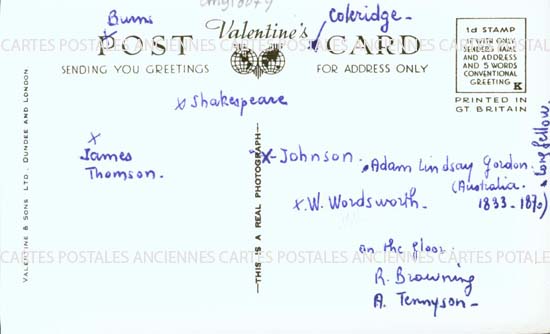 Burns
cmy10074
Coleridge-
Valentine's
x POST CARD
SENDING YOU GREETINGS FOR ADDRESS ONLY
1d STAMP
IF WITH ONLY
SENDER'S NAME
AND ADDRESS
AND 5 WORDS
CONVENTIONAL
GREETING
K
PRINTED IN
GT. BRITAIN
CARTES POSTALES ANCIENNES CARTES POSTALES ANCIENNES CARTES POSTALES
x Shakespeare
x
James
Thomson.
x-Johnson.
x Adam Lindsay Gordon.
(Australia.
1833-1870)
x Longfellow.
x.W. Wordsworth-
on the floor:
R. Browning
A. Tennyson-
CARTES POSTALES ANCIENNES CARTES POSTALES ANCIENNES CARTES POTALES
VALENTINE & SONS LTD., DUNDEE AND LONDON
—THIS IS A REAL PHOTOGRAPH—